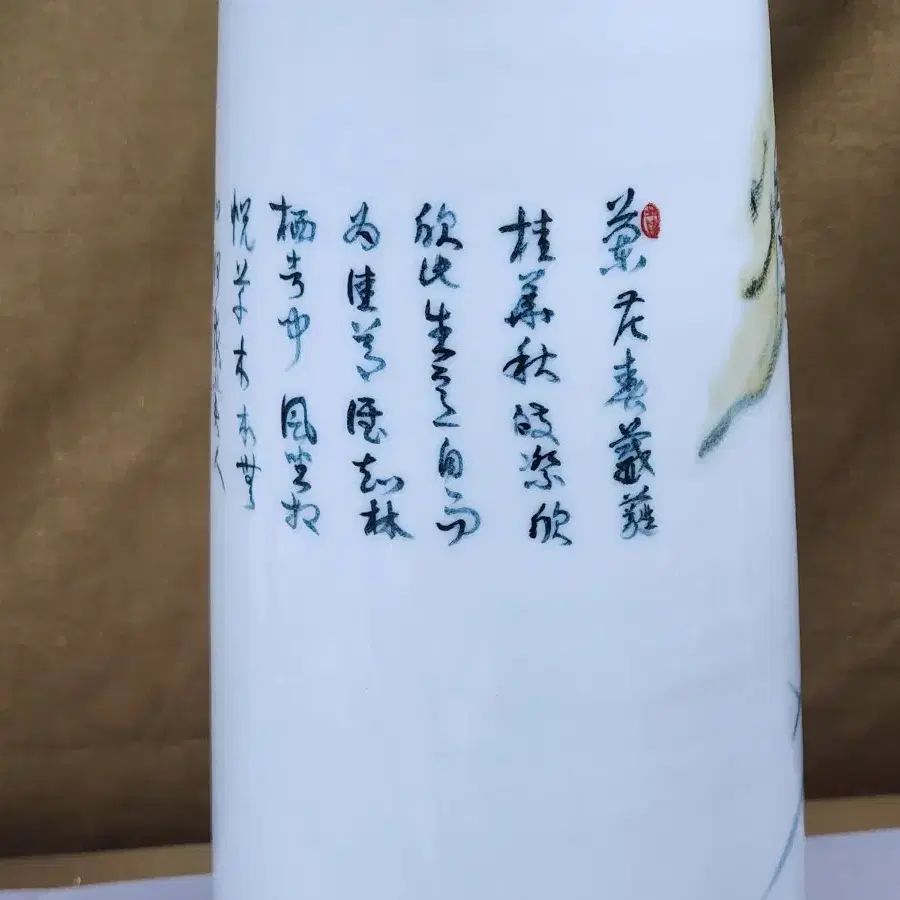 蘭春葳蕤
桂華秋皎潔欣
欣此生意自而
为佳節誰知林
栖者聞風坐相
悅草木本無